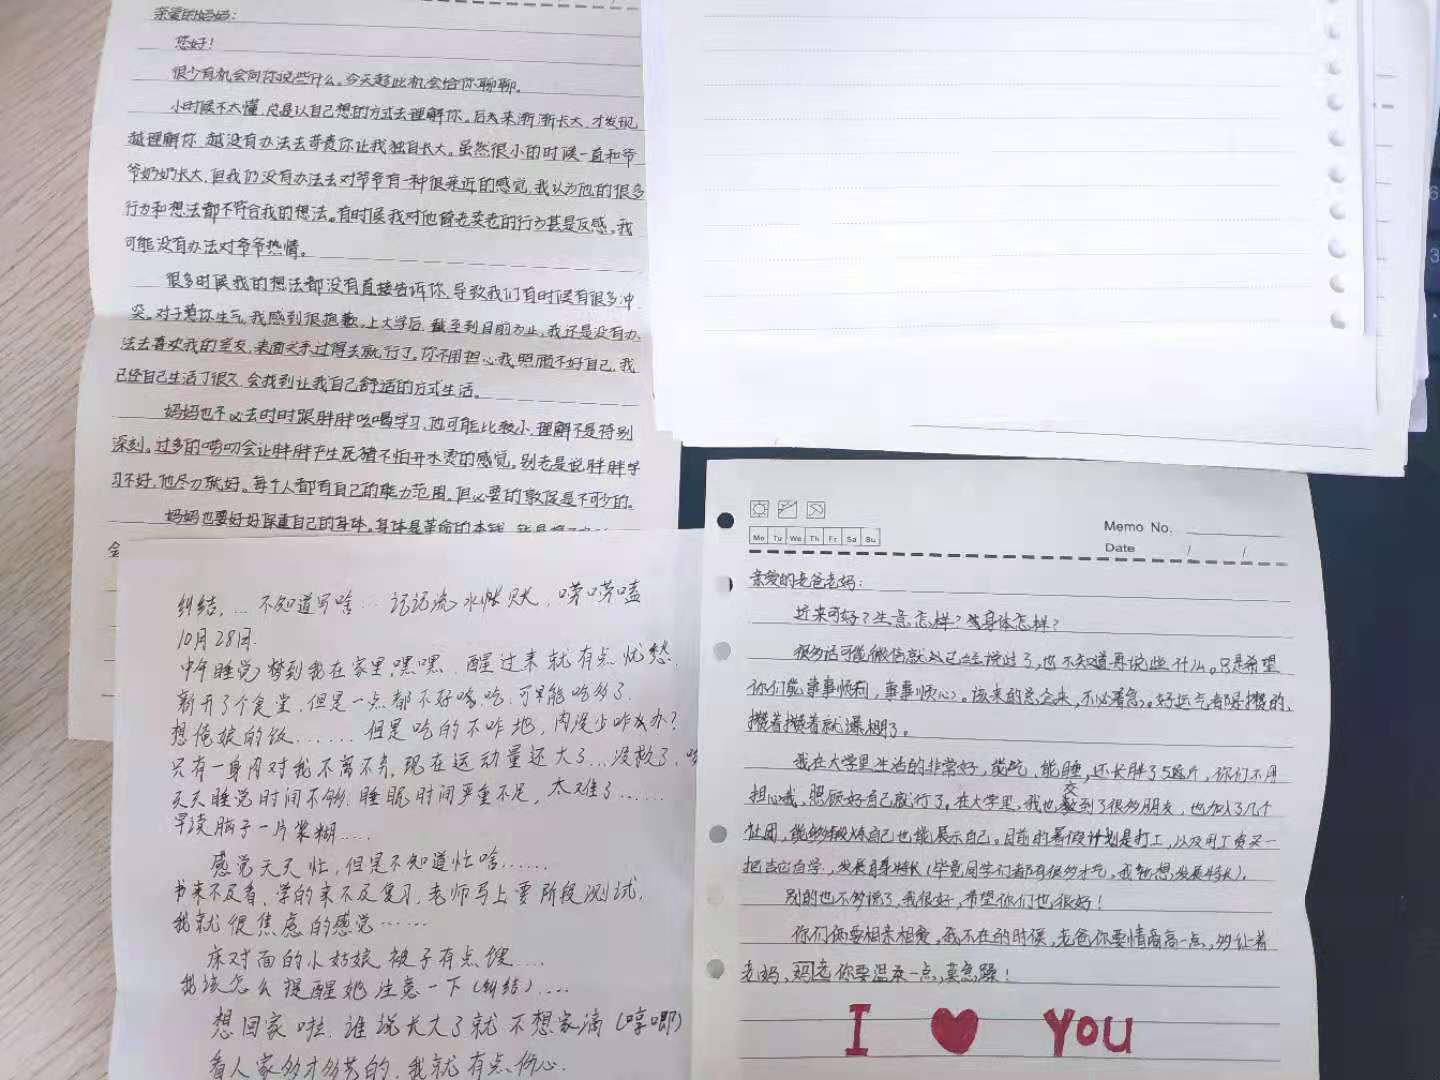 亲爱的妈妈：
您好！
很少有机会向你说些什么。今天趁此机会给你聊聊。
小时候不大懂，总是以自己想的方式去理解你。后来渐渐长大，才发现
越理解你，越没有办法去苛责你让我独自长大。虽然很小的时候一直和爷
爷奶奶长大，但我仍没有办法去对爷爷有一种很亲近的感觉，我认为他的很多
行为和想法都不符合我的想法。有时候我对他倚老卖老的行为甚是反感。我
可能没有办法对爷爷热情。
很多时候我的想法都没有直接告诉你，导致我们有时候有很多冲
突。对于惹你生气，我感到很抱歉。上大学后，截至到目前为止，我还是没有办
法去喜欢我的室友，表面关系过得去就行了。你不用担心我照顾不好自己，我
已经自己生活了很久，会找到让我自己舒适的方式生活。
妈妈也不必去时时跟胖胖吆喝学习，他可能比较小，理解不是特别
深刻。过多的唠叨会让胖胖产生死猪不怕开水烫的感觉。别老是说胖胖学
习不好，他尽力就好。每个人都有自己的能力范围。但必要的敦促是不可少的。
妈妈也要好好保重自己的身体。身体是革命的本钱，
会
纠结，…不知道写啥…记记流水帐账，唠唠嗑
10月28日.
中午睡觉梦到我在家里，嘿嘿.醒过来就有点忧愁.
新开了个食堂，但是一点都不好啥吃，可能吃多了.
想俺娘的饭……但是吃的不咋地，肉没少咋么办？
只有一身肉对我不离不弃，现在运动量还大了…没救了.
天天睡觉时间不够.睡眠时间严重不足，太难了……
早读脑子一片浆糊……
感觉天天忙，但是不知道忙啥……
书来不及看，学的来不及复习，老师马上要阶段测试，
我就很焦虑的感觉……
床对面的小姑娘被子有点馊….
我该怎么提醒她注意一下（纠结）….
想回家啦.谁说长大了就不想家滴（哼唧）
看人家多才多艺的，我就有点伤心.
Memo No.
Mo Tu We Th Fr Sa Su
Date / /
亲爱的老爸老妈：
近来可好？生意怎样？身体怎样？
很多话可能微信就已经说过了，也不知道再说些什么。只是希望
你们能事事顺利，事事顺心。该来的总会来，不必着急。好运气都是攒的，
攒着攒着就爆棚了。
我在大学里生活的非常好，能吃，能睡，还长胖了5斤，你们不用
担心我，照顾好自己就行了。在大学里，我也交到了很多朋友，也加入了几个
社团，能够锻炼自己也能展示自己。目前的暑假计划是打工，以及用工资买一
把吉它自学，发展自身特长（毕竟同学们都有很多才艺，我也想发展特长）.
别的也不多说了，我很好，希望你们也很好！
你们俩要相亲相爱，我不在的时候，老爸你要情商高一点，多让着
老妈，妈老你要温柔一点，莫急躁！
I ❤ YOU